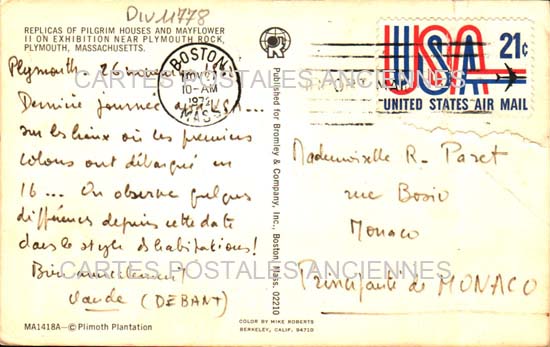 DIV 11778
REPLICAS OF PILGRIM HOUSES AND MAYFLOWER
II ON EXHIBITION NEAR PLYMOUTH ROCK,
PLYMOUTH, MASSACHUSETTS.
Plymouth. 26 novembre
Dernière journée
sur les lieux où les premiers
colons ont débarqué en
16... On observe quelques
différences depuis cette date
dans le style d'habitations!
Bien amicalement
(DEBANT)
MA1418A—© Plimoth Plantation
BOSTON
NOV 27
10-AM
MASS
Published for Bromley & Company, Inc., Boston, Mass. 02210
COLOR BY MIKE ROBERTS
BERKELEY, CALIF. 94710
USA 21¢
UNITED STATES AIR MAIL
Mademoiselle R. Paret
rue Bosio
Monaco
Principauté de MONACO
CARTES POSTALES ANCIENNES
CARTES POSTALES ANCIENNES